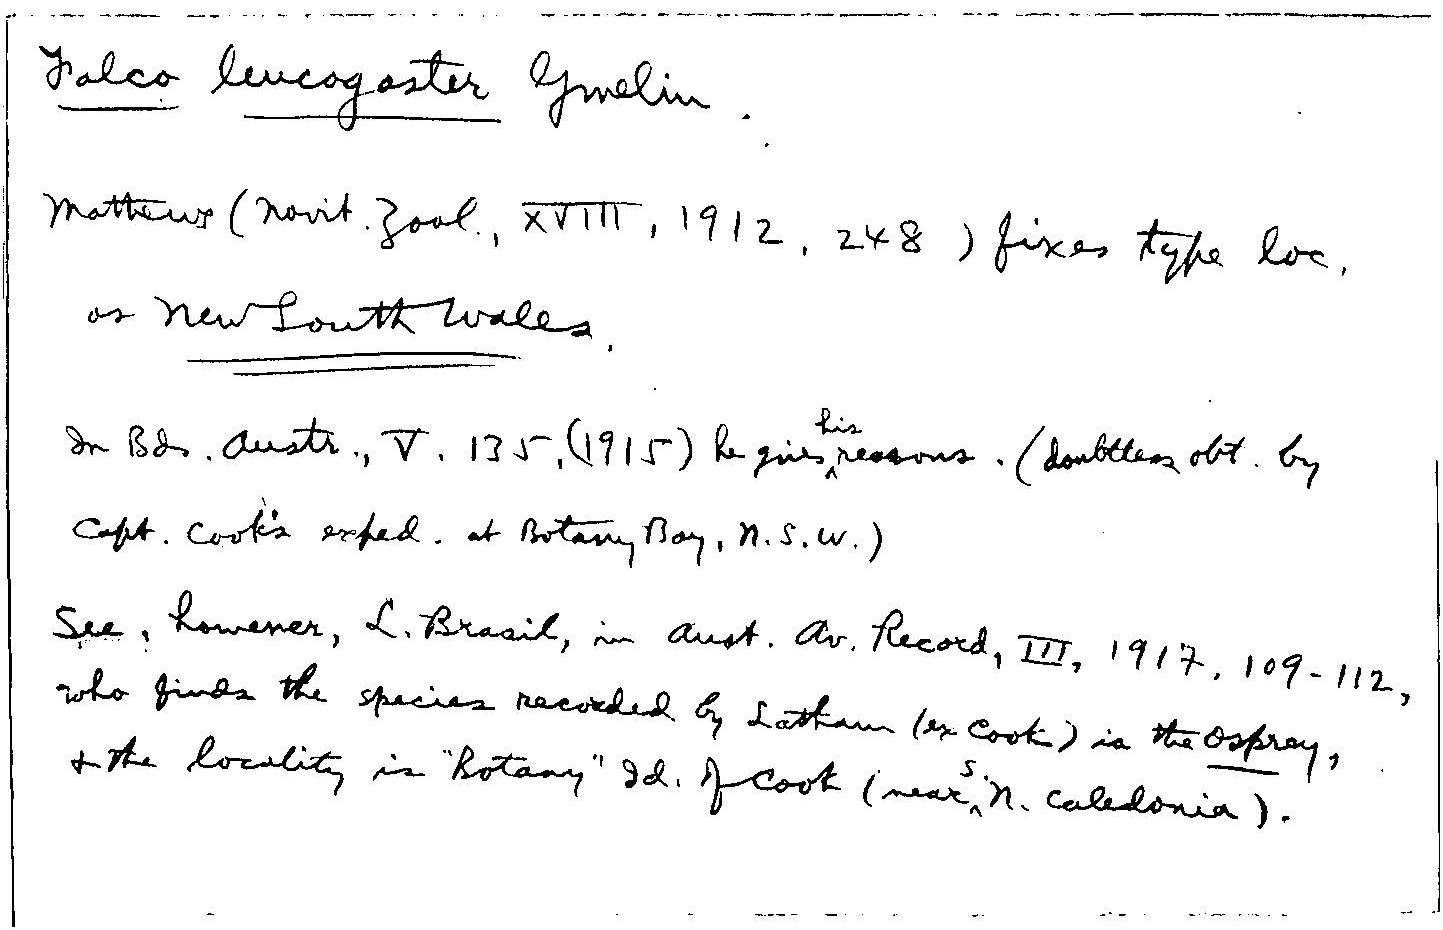 Falco leucogaster Gmelin.
Mathews (Novit. Zool., XVIII, 1912, 248) fixes type loc.
as New South Wales.
In Bds. Austr., V. 135, (1915) he gives his reasons. (doubtless obt. by
Capt. Cook's exped. at Botany Bay, N.S.W.)
See, however, L. Brasil, in Aust. Av. Record, III, 1917, 109-112,
who finds the species recorded by Latham (ex Cook) is the Osprey,
& the locality is "Botany" Id. of Cook (near S. N. Caledonia).